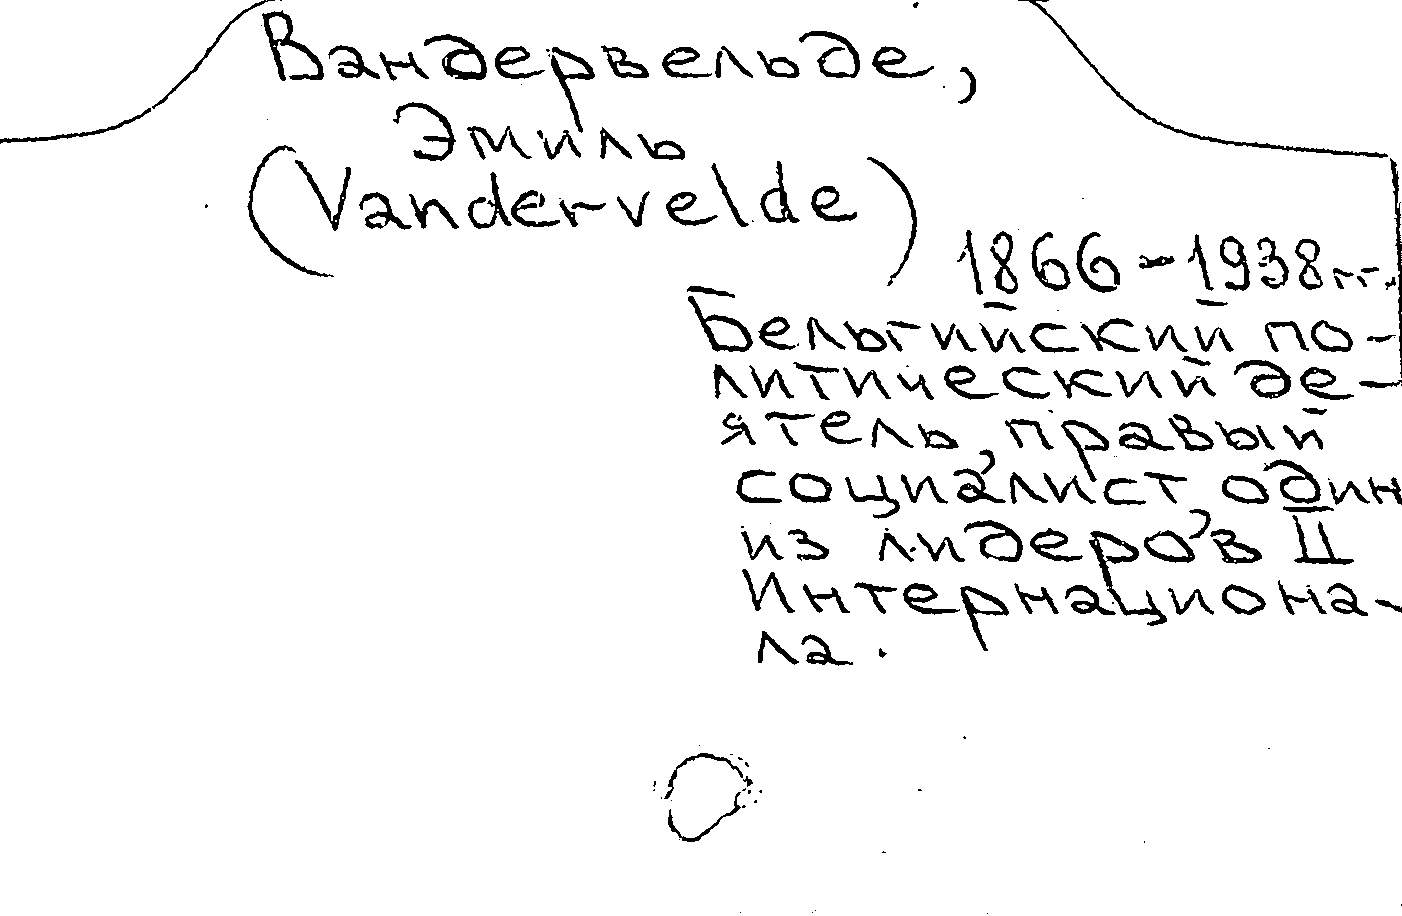 Вандервельде,
Эмиль
(Vandervelde)
1866-1938гг.
Бельгийский по-
литический де-
ятель, правый
социалист один
из лидеров II
Интернациона-
ла.